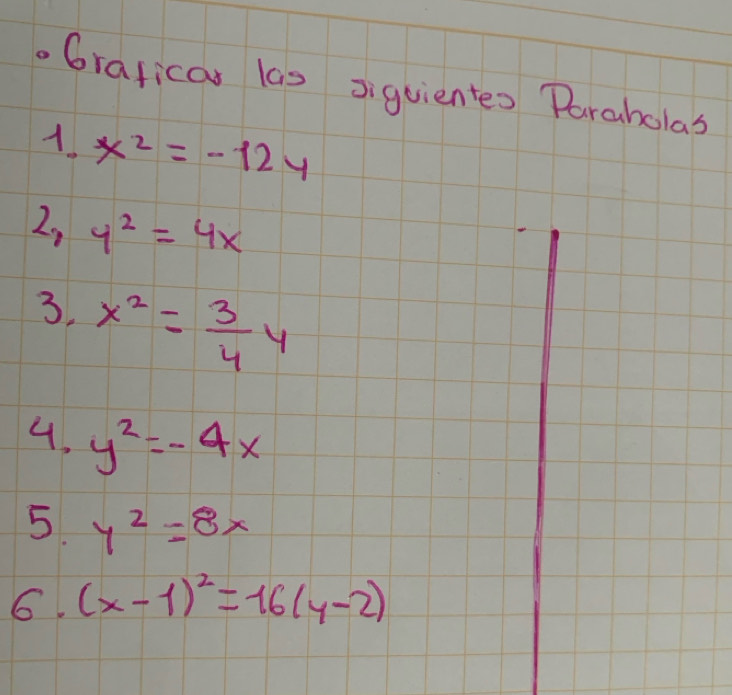 • Graficar las siguientes Parabolas
1. x² = -12y
2, y² = 4x
3. x² = 3/4 y
4. y² = -4x
5. y² = 8x
6. (x-1)² = 16(y-2)